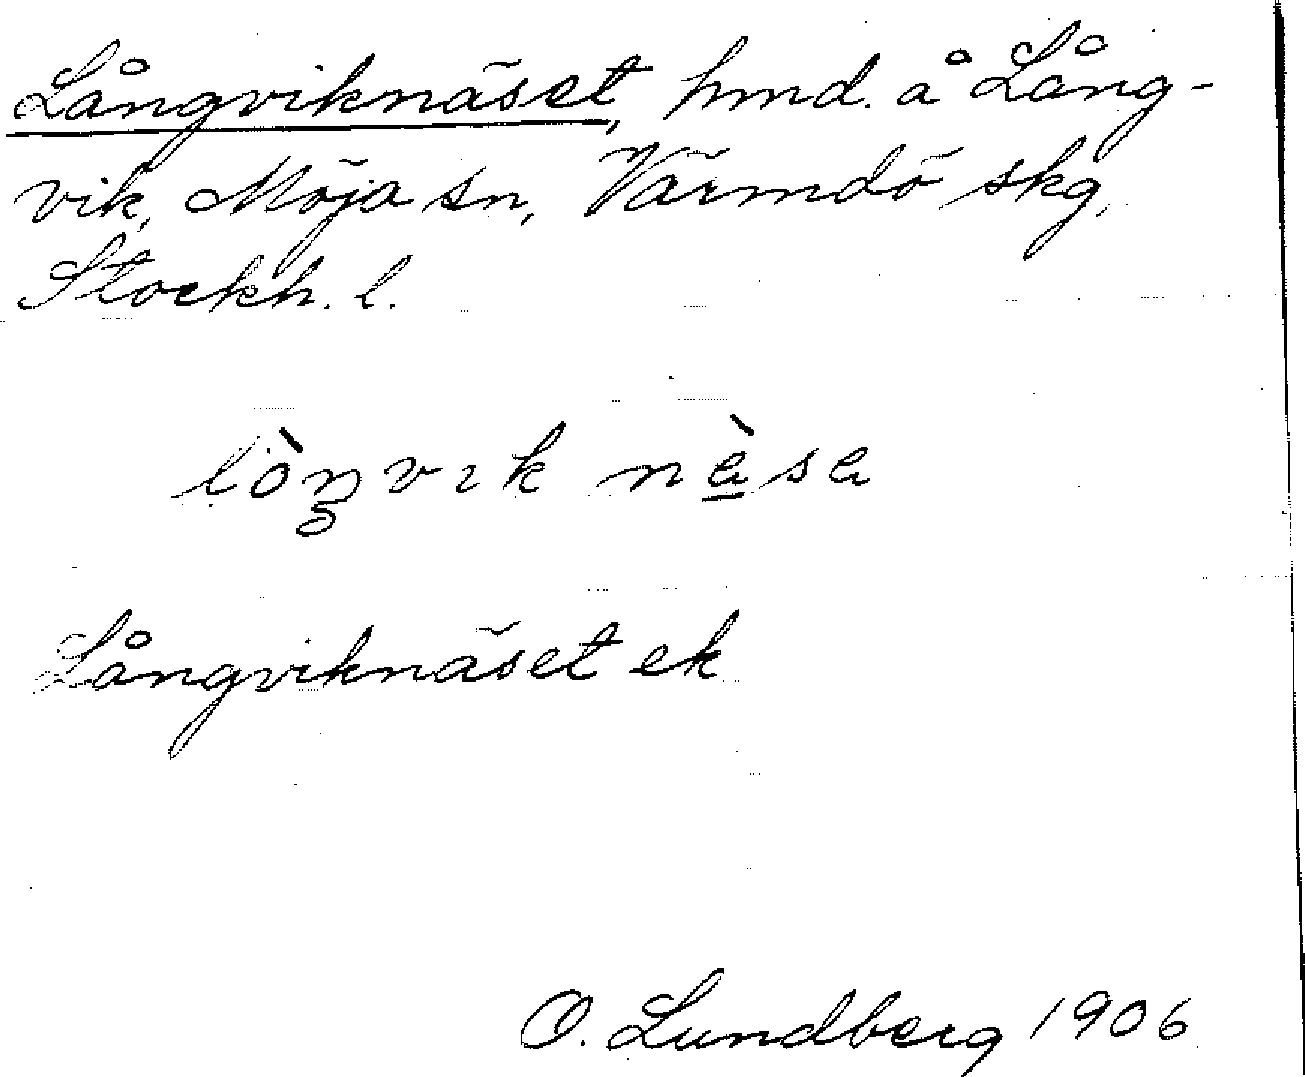 Långviknäset, hmd. å Lång-
vik, Möja sn, Värmdö skg,
Stockh. l.
lòŋvık nàsa
Långviknäset ek
O. Lundberg 1906